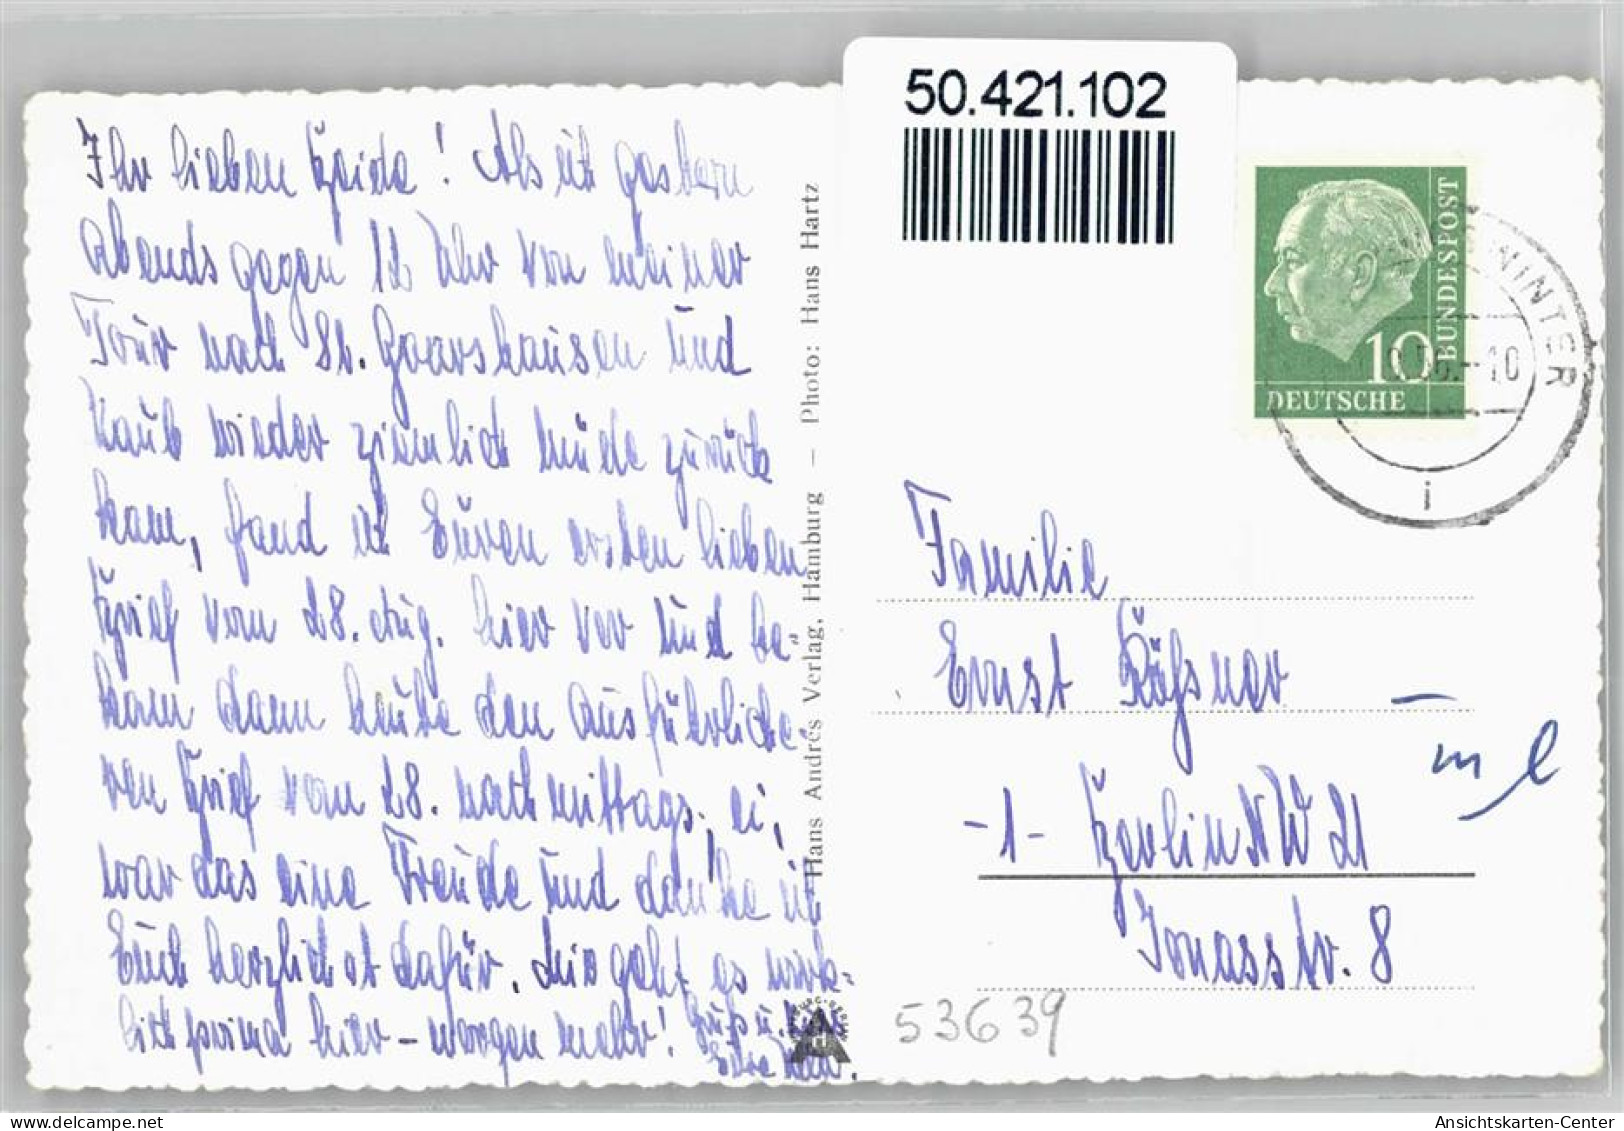 50.421.102
Ihr lieben beide! Als ich gestern
abends gegen 12 Uhr von meiner
Tour nach St. Goarshausen und
Kaub wieder ziemlich müde zurück
kam, fand ich Euren ersten lieben
Brief vom 28. Aug. hier vor und be-
kam dann heute den ausführliche-
ren Brief vom 28. nachmittags, ei,
war das eine Freude und danke ich
Euch herzlichst dafür. Mir geht es wirk-
lich prima hier - morgen mehr! Gruß u. Kuss
Eure
Hans Andres Verlag, Hamburg – Photo: Hans Hartz
DEUTSCHE BUNDESPOST
10
WINTER
-10
i
Familie
Ernst
-1- Berlin NW 21
Jonasstr. 8
53639
Ansichtskarten-Center